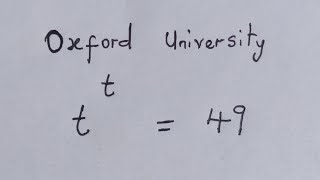 Oxford University
t^t = 49